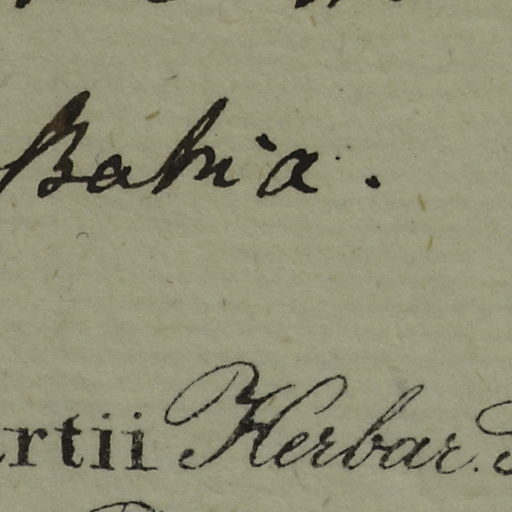 Bahia.
artii Herbar.